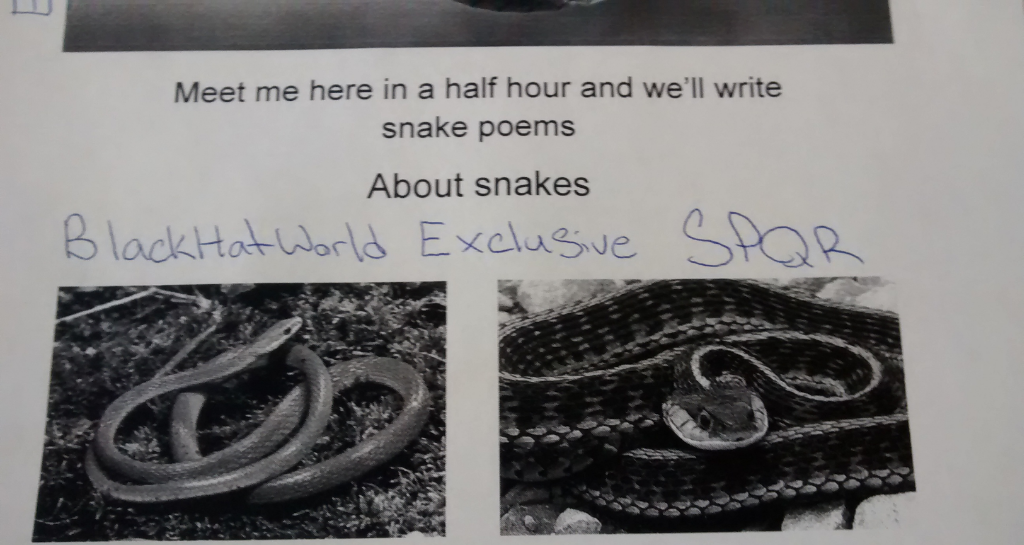 Meet me here in a half hour and we'll write
snake poems
About snakes
BlackHatWorld Exclusive SPQR